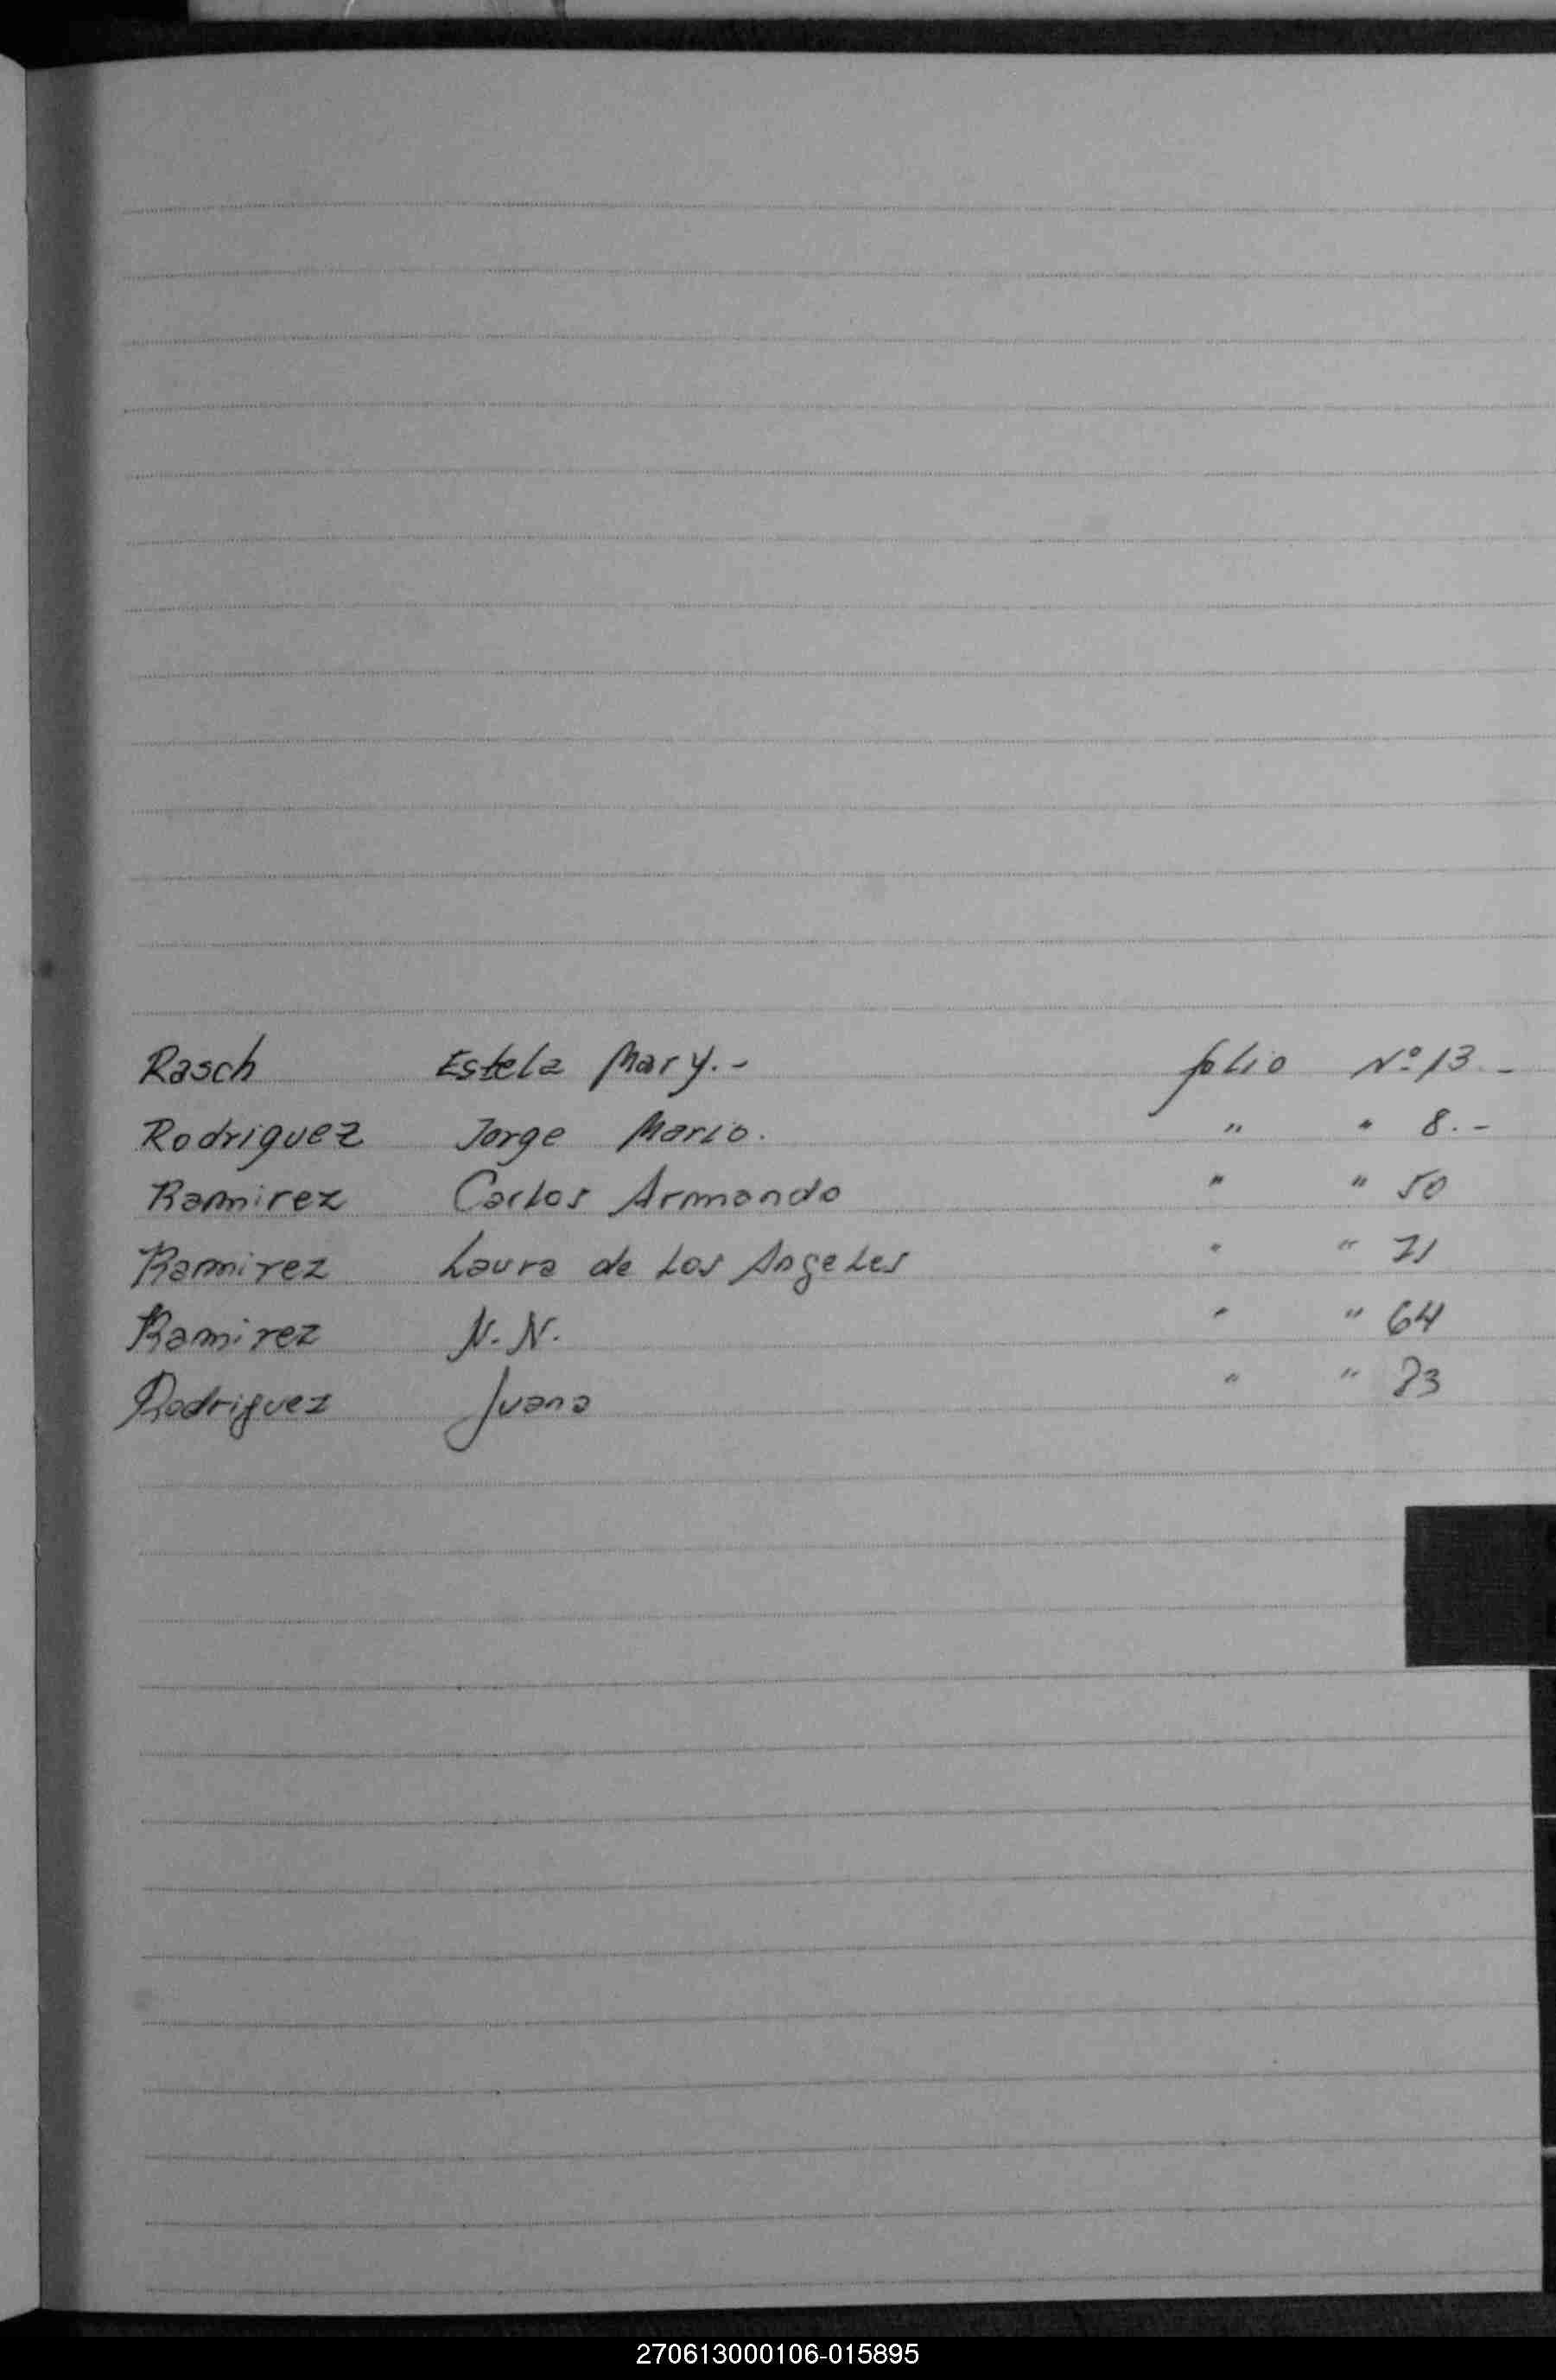 Rasch Estela Mary.- folio Nº 13.-
Rodriguez Jorge Mario. " " 8.-
Ramirez Carlos Armando " " 50
Ramirez Laura de Los Angeles " " 71
Ramirez N.N. " " 64
Rodriguez Juana " " 83
270613000106-015895